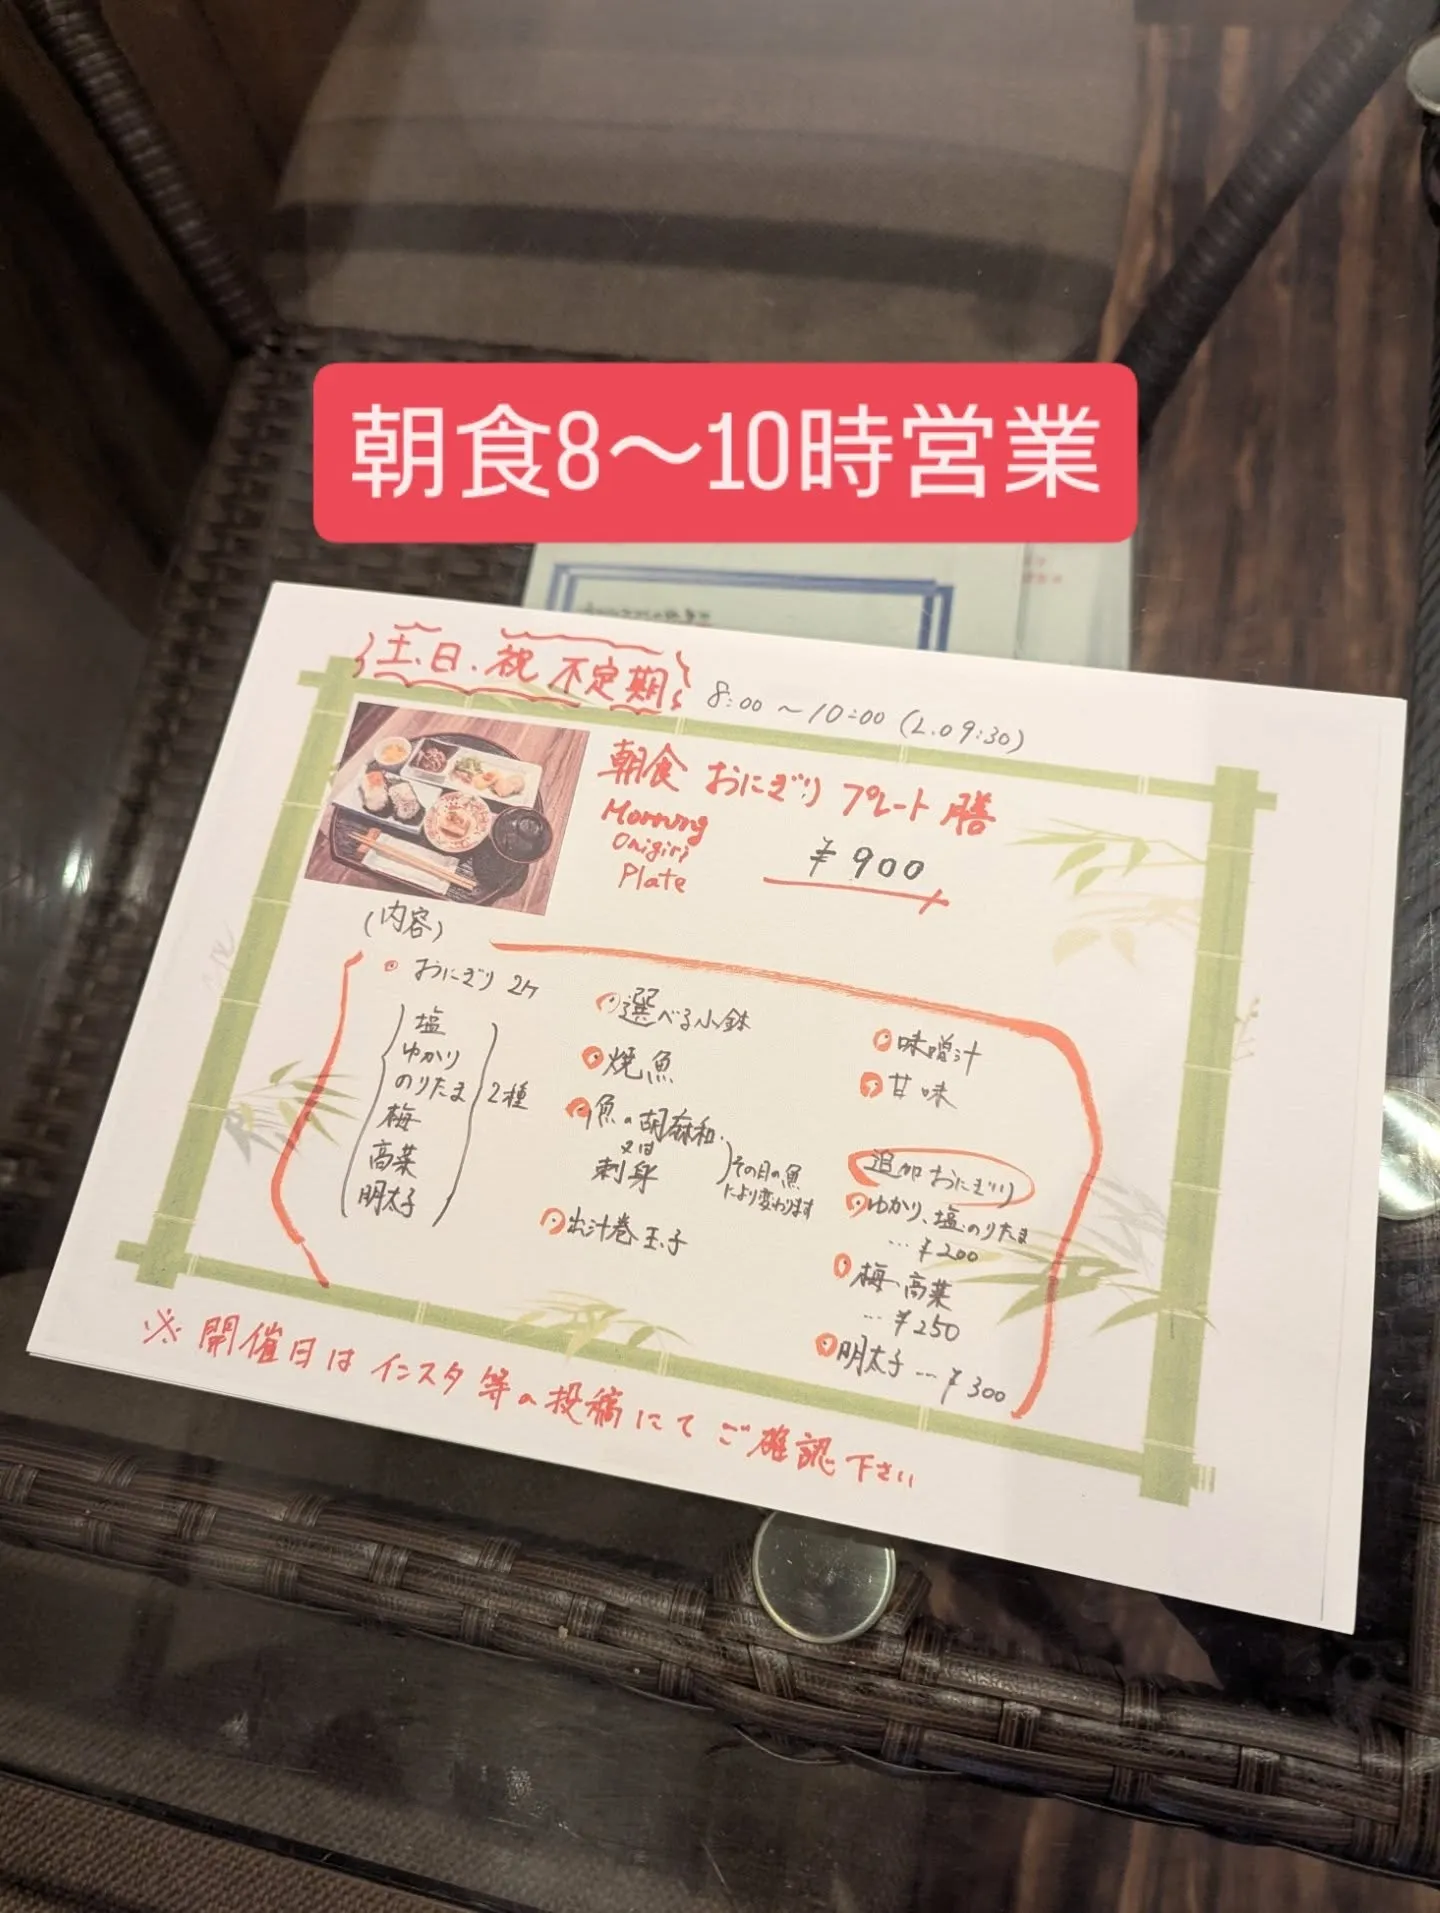 朝食8〜10時営業
土、日、祝 不定期
8:00 〜 10:00 (L.O 9:30)
朝食 おにぎり プレート 膳
Morning
Onigiri
Plate
¥900
(内容)
おにぎり 2ケ
塩
ゆかり
のりたま
梅
高菜
明太子
2種
選べる小鉢
焼魚
魚の胡麻和
又は
刺身
その日の魚
により変わります
出汁巻玉子
味噌汁
甘味
追加おにぎり
ゆかり、塩、のりたま
… ¥200
梅、高菜
… ¥250
明太子 … ¥300
※ 開催日は インスタ 等の投稿にて ご確認下さい